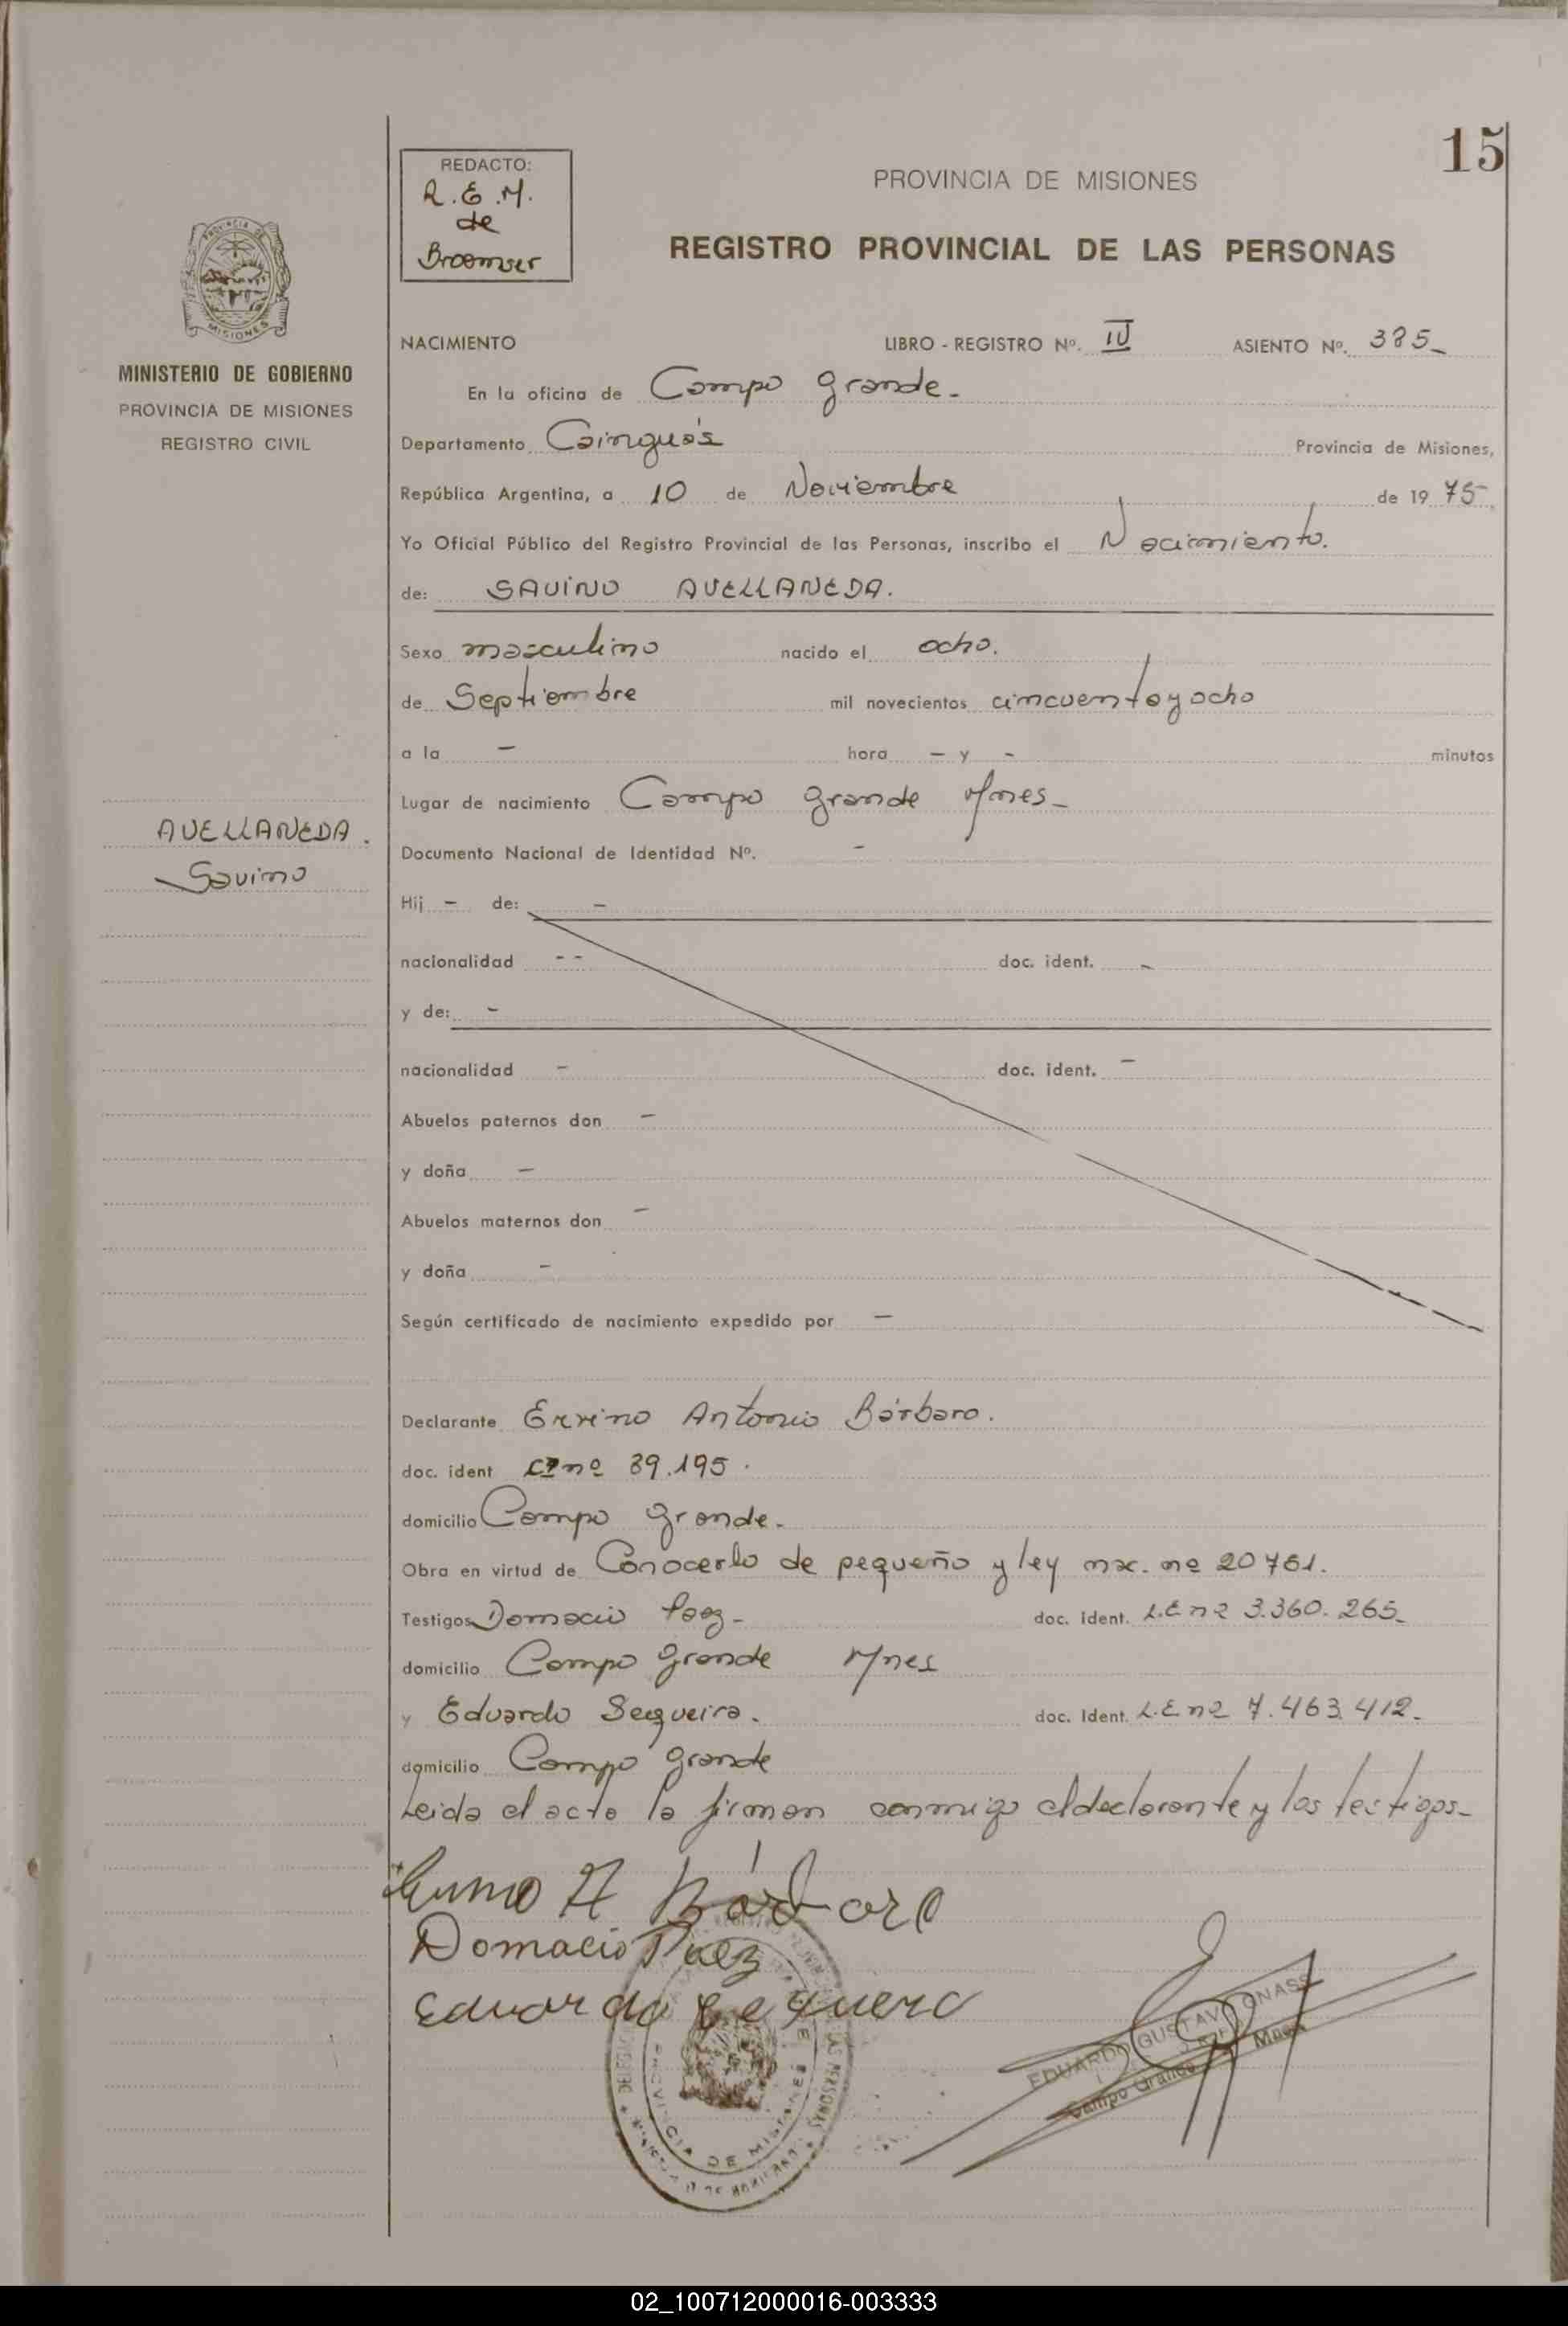 15
REDACTO:
R.E.M.
de
PROVINCIA DE MISIONES
REGISTRO PROVINCIAL DE LAS PERSONAS
PROVINCIA DE
MISIONES
MINISTERIO DE GOBIERNO
PROVINCIA DE MISIONES
REGISTRO CIVIL
NACIMIENTO LIBRO - REGISTRO Nº. IV ASIENTO Nº. 385_
En la oficina de Campo Grande.
Departamento Cainguás Provincia de Misiones,
República Argentina, a 10 de Noviembre de 19 75
Yo Oficial Público del Registro Provincial de las Personas, inscribo el Nacimiento.
de: SAVINO AVELLANEDA.
Sexo masculino nacido el ocho.
de Septiembre mil novecientos cincuenta y ocho
a la - hora - y - minutos
Lugar de nacimiento Campo Grande Mnes_
AVELLANEDA.
Savino
Documento Nacional de Identidad Nº. -
Hij - de: -
nacionalidad - - doc. ident. -
y de: -
nacionalidad - doc. ident. -
Abuelos paternos don -
y doña -
Abuelos maternos don -
y doña -
Según certificado de nacimiento expedido por -
Declarante Antonio Bárbaro.
doc. ident nº 39.195.
domicilio Campo Grande.
Obra en virtud de Conocerlo de pequeño y ley nac. nº 20761.
Testigos Domacio Paez_ doc. ident. L.E nº 3.360.265_
domicilio Campo Grande Mnes
y Eduardo Sequeira. doc. Ident. L.E nº 7.463.412.
domicilio Campo Grande
Leida el acta la firman conmigo el declarante y los testigos_
A Bárbaro
Domacio Paez
Eduardo
EDUARDO GUSTAVO
Campo Grande Mnes
PROVINCIA DE MISIONES
MINISTERIO DE GOBIERNO
02_100712000016-003333